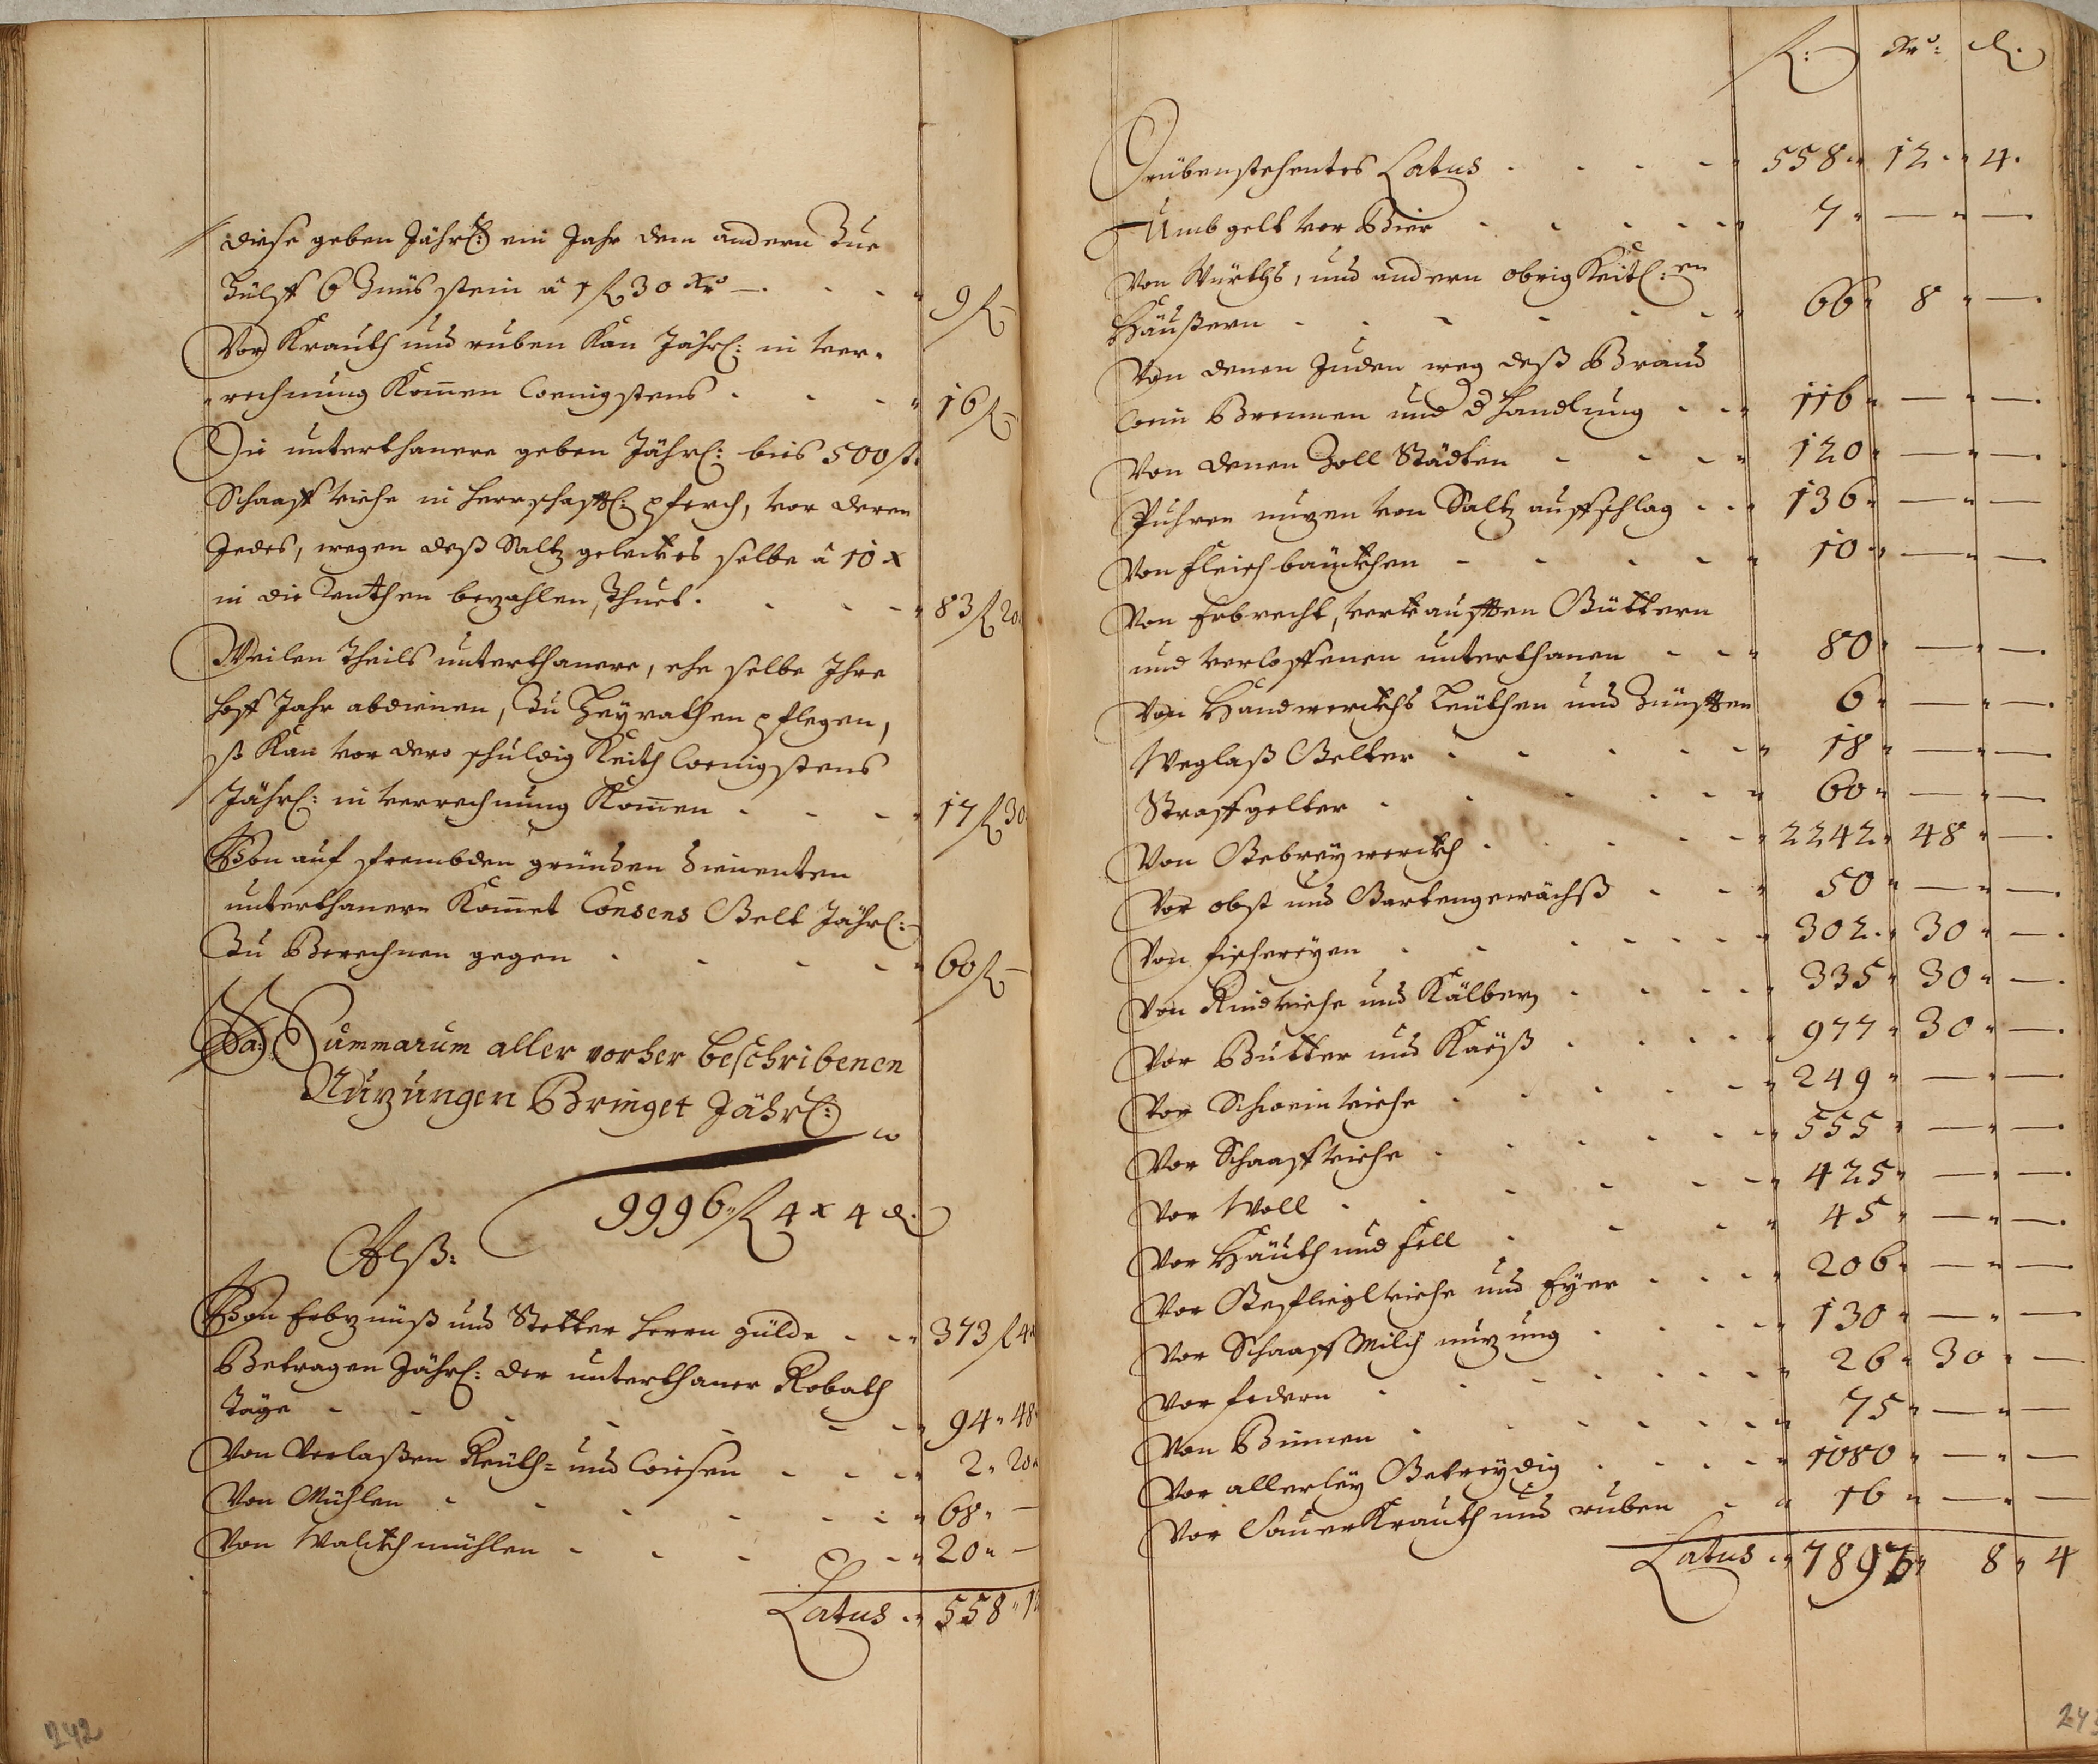 diese geben Jährl: ein Jahr dem andern Zue
Hülff 6 Zinß stein â 1 fl 30 Xr – 9 fl –
Vor Krauth und ruben Kan Jährl: in ver-
rechnung Kom̄en wenigstens 16 fl –
Die unterthanere geben Jährl: bies 500 st:
Schaaff viehe in herrschafftl: pferch, vor deren
Jedes, wegen deß Saltz geleckes selbe â 10 x
in die Renthen bezahlen, Thuet. 83 fl 20
Weilen Theils unterthanere, ehe selbe Ihre
hoff Jahr abdienen, Zu Heÿrathen pflegen,
so Kan vor dero schuldig Keith wenigstens
Jährl: in verrechnung Kom̄en 17 fl 30
Von auf frembden gründen dienenten
unterthanern Kom̄et Consens Gelt Jährl:
Zu Berechnen gegen 60 fl –
Sa: Summarum aller vorher beschribenen
Nuzungen Bringet Jährl:
9996 fl 4 x 4 d.
Alß:
Von Erbzinß und Stetter herrn gülde 373 fl 4
Betragen Jährl: der unterthaner Robath
Täge 94 " 48
Von Verlaßen Reüth= und wiesen 2 " 20
Von Mühlen 68 " –
Von Walckhmühlen 20 " –
Latus 558 " 12
242
fl: Xr: d.
Drübenstehentes Latus 558 " 12 " 4.
Umbgelt vor Bier 7 " — " —.
Von Würths, und andern obrigKeitl:en
Häußern 66 " 8 " —.
Von denen Juden weg deß Brand
wein Brennen und d handlung 116 " — " —.
Von denen Zoll Städten 120 " — " —.
Fuhren nuzen von Saltz auffschlag 136 " — " —
Von fleischbänckhen 10 " — " —
Von Erbrecht, verkaufften Güttern
und verloffenen unterthanen 80 " — " —.
Von Handwerckhs Leüthen und Zünfften 6 " — " —.
Weglaß Gelter 18 " — " —.
Straffgelter 60 " — " —.
Von Gebreÿwerckh 2242 " 48 " —.
Vor obst und Gartengewächß 50 " — " —.
Von fischereÿen 302 " 30 " —.
Von Rindviehe und Kälber 335 " 30 " —.
Vor Butter und Käeß 977 " 30 " —.
Vor Schweinviehe 249 " — " —
Vor Schaaffviehe 555 " — " —.
Vor Woll 425 " — " —.
Vor Häuth und fell 45 " — " —.
Vor Gefliglviehe und Eÿer 206 " — " —
Vor Schaaff Milch nuzung 130 " — " —
Vor federn 26 " 30 " —
Von Binnen 75 " — " —
Vor allerleÿ Getreÿdig 1080 " — " —
Vor SauerKrauth und ruben 16 " — " —
Latus 7897 " 8 " 4